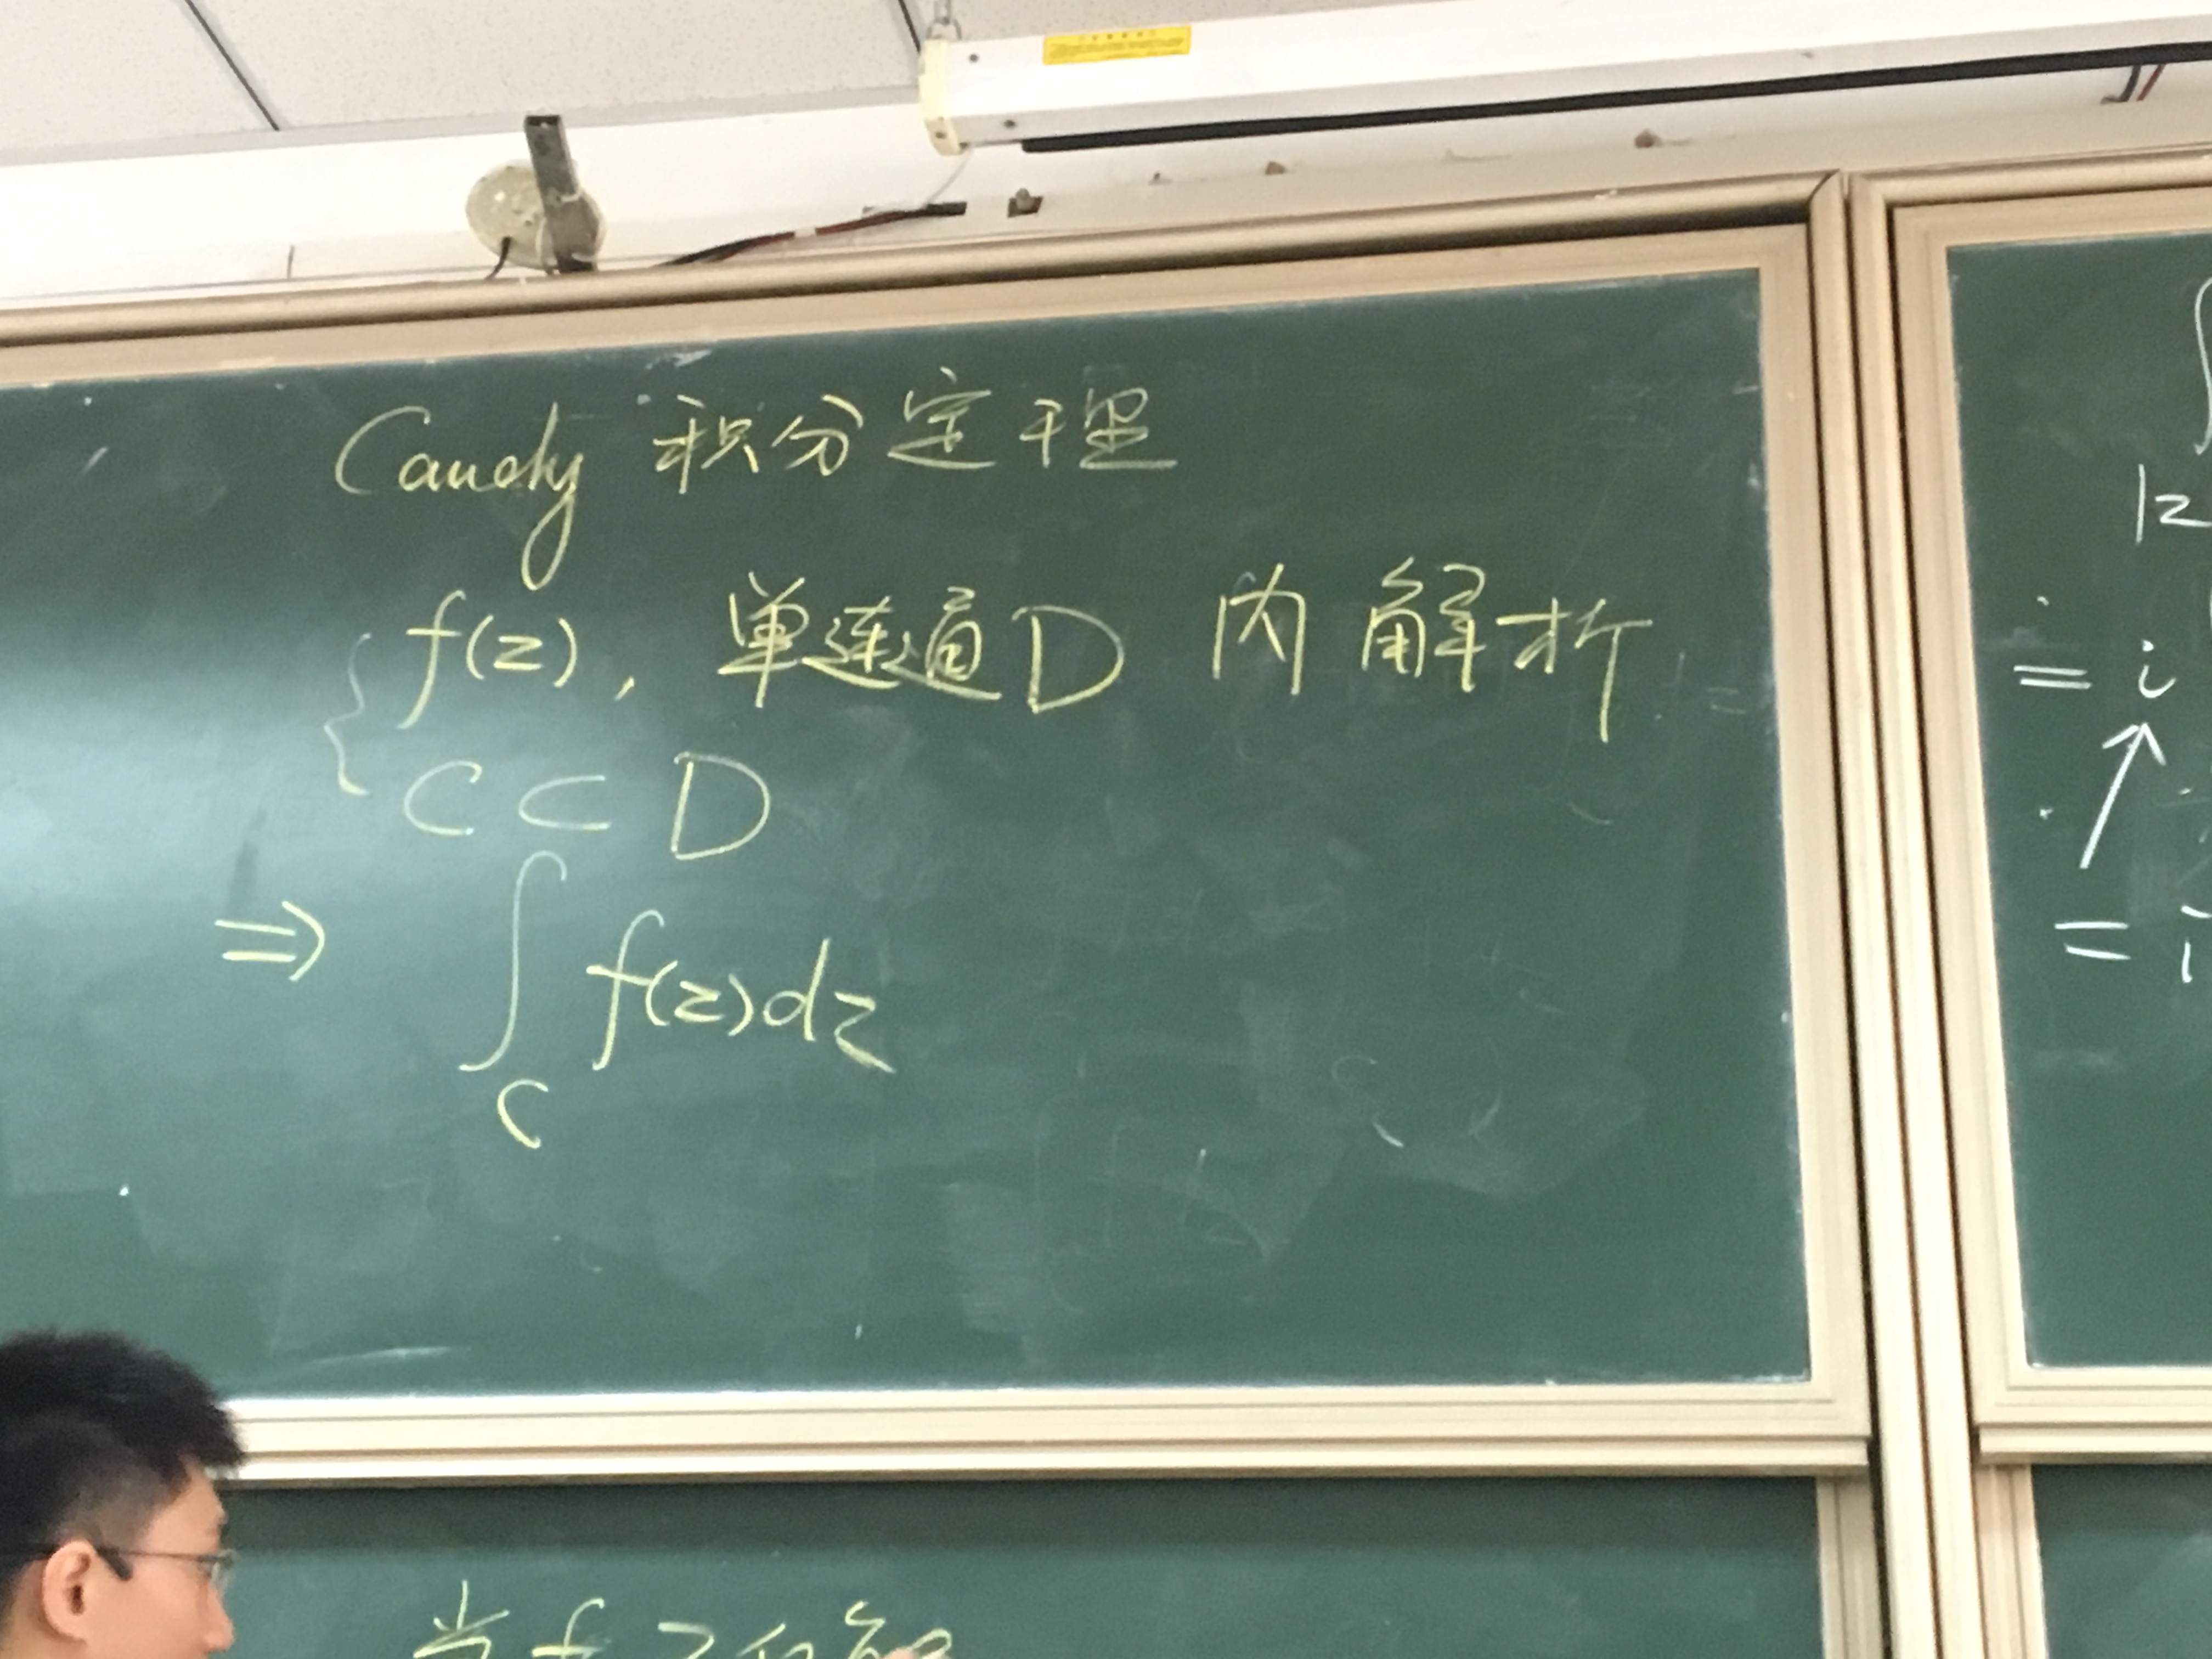 Cauchy 积分定理
f(z), 单连通D 内解析
C ⊂ D
⇒ ∫_C f(z)dz
12
= i
= i
当f